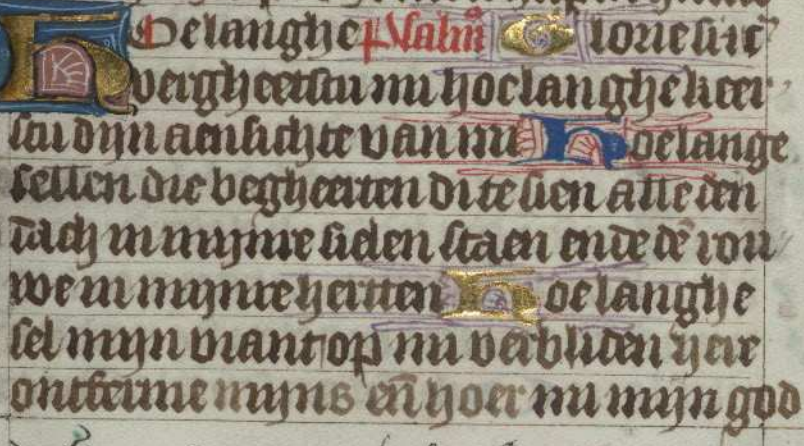 Hoelanghe psalm̄ Glorie si ic
vergheetstu mi hoelanghe keer
stu dijn aensichte van mi Hoelange
sellen die begheerten di te sien alle den
dach in mijnre sielen staen ende dē rou
we in mijnre hertten Hoelanghe
sel mijn viant op mi verbliden here
ontferme mijns eñ hoer mi mijn god